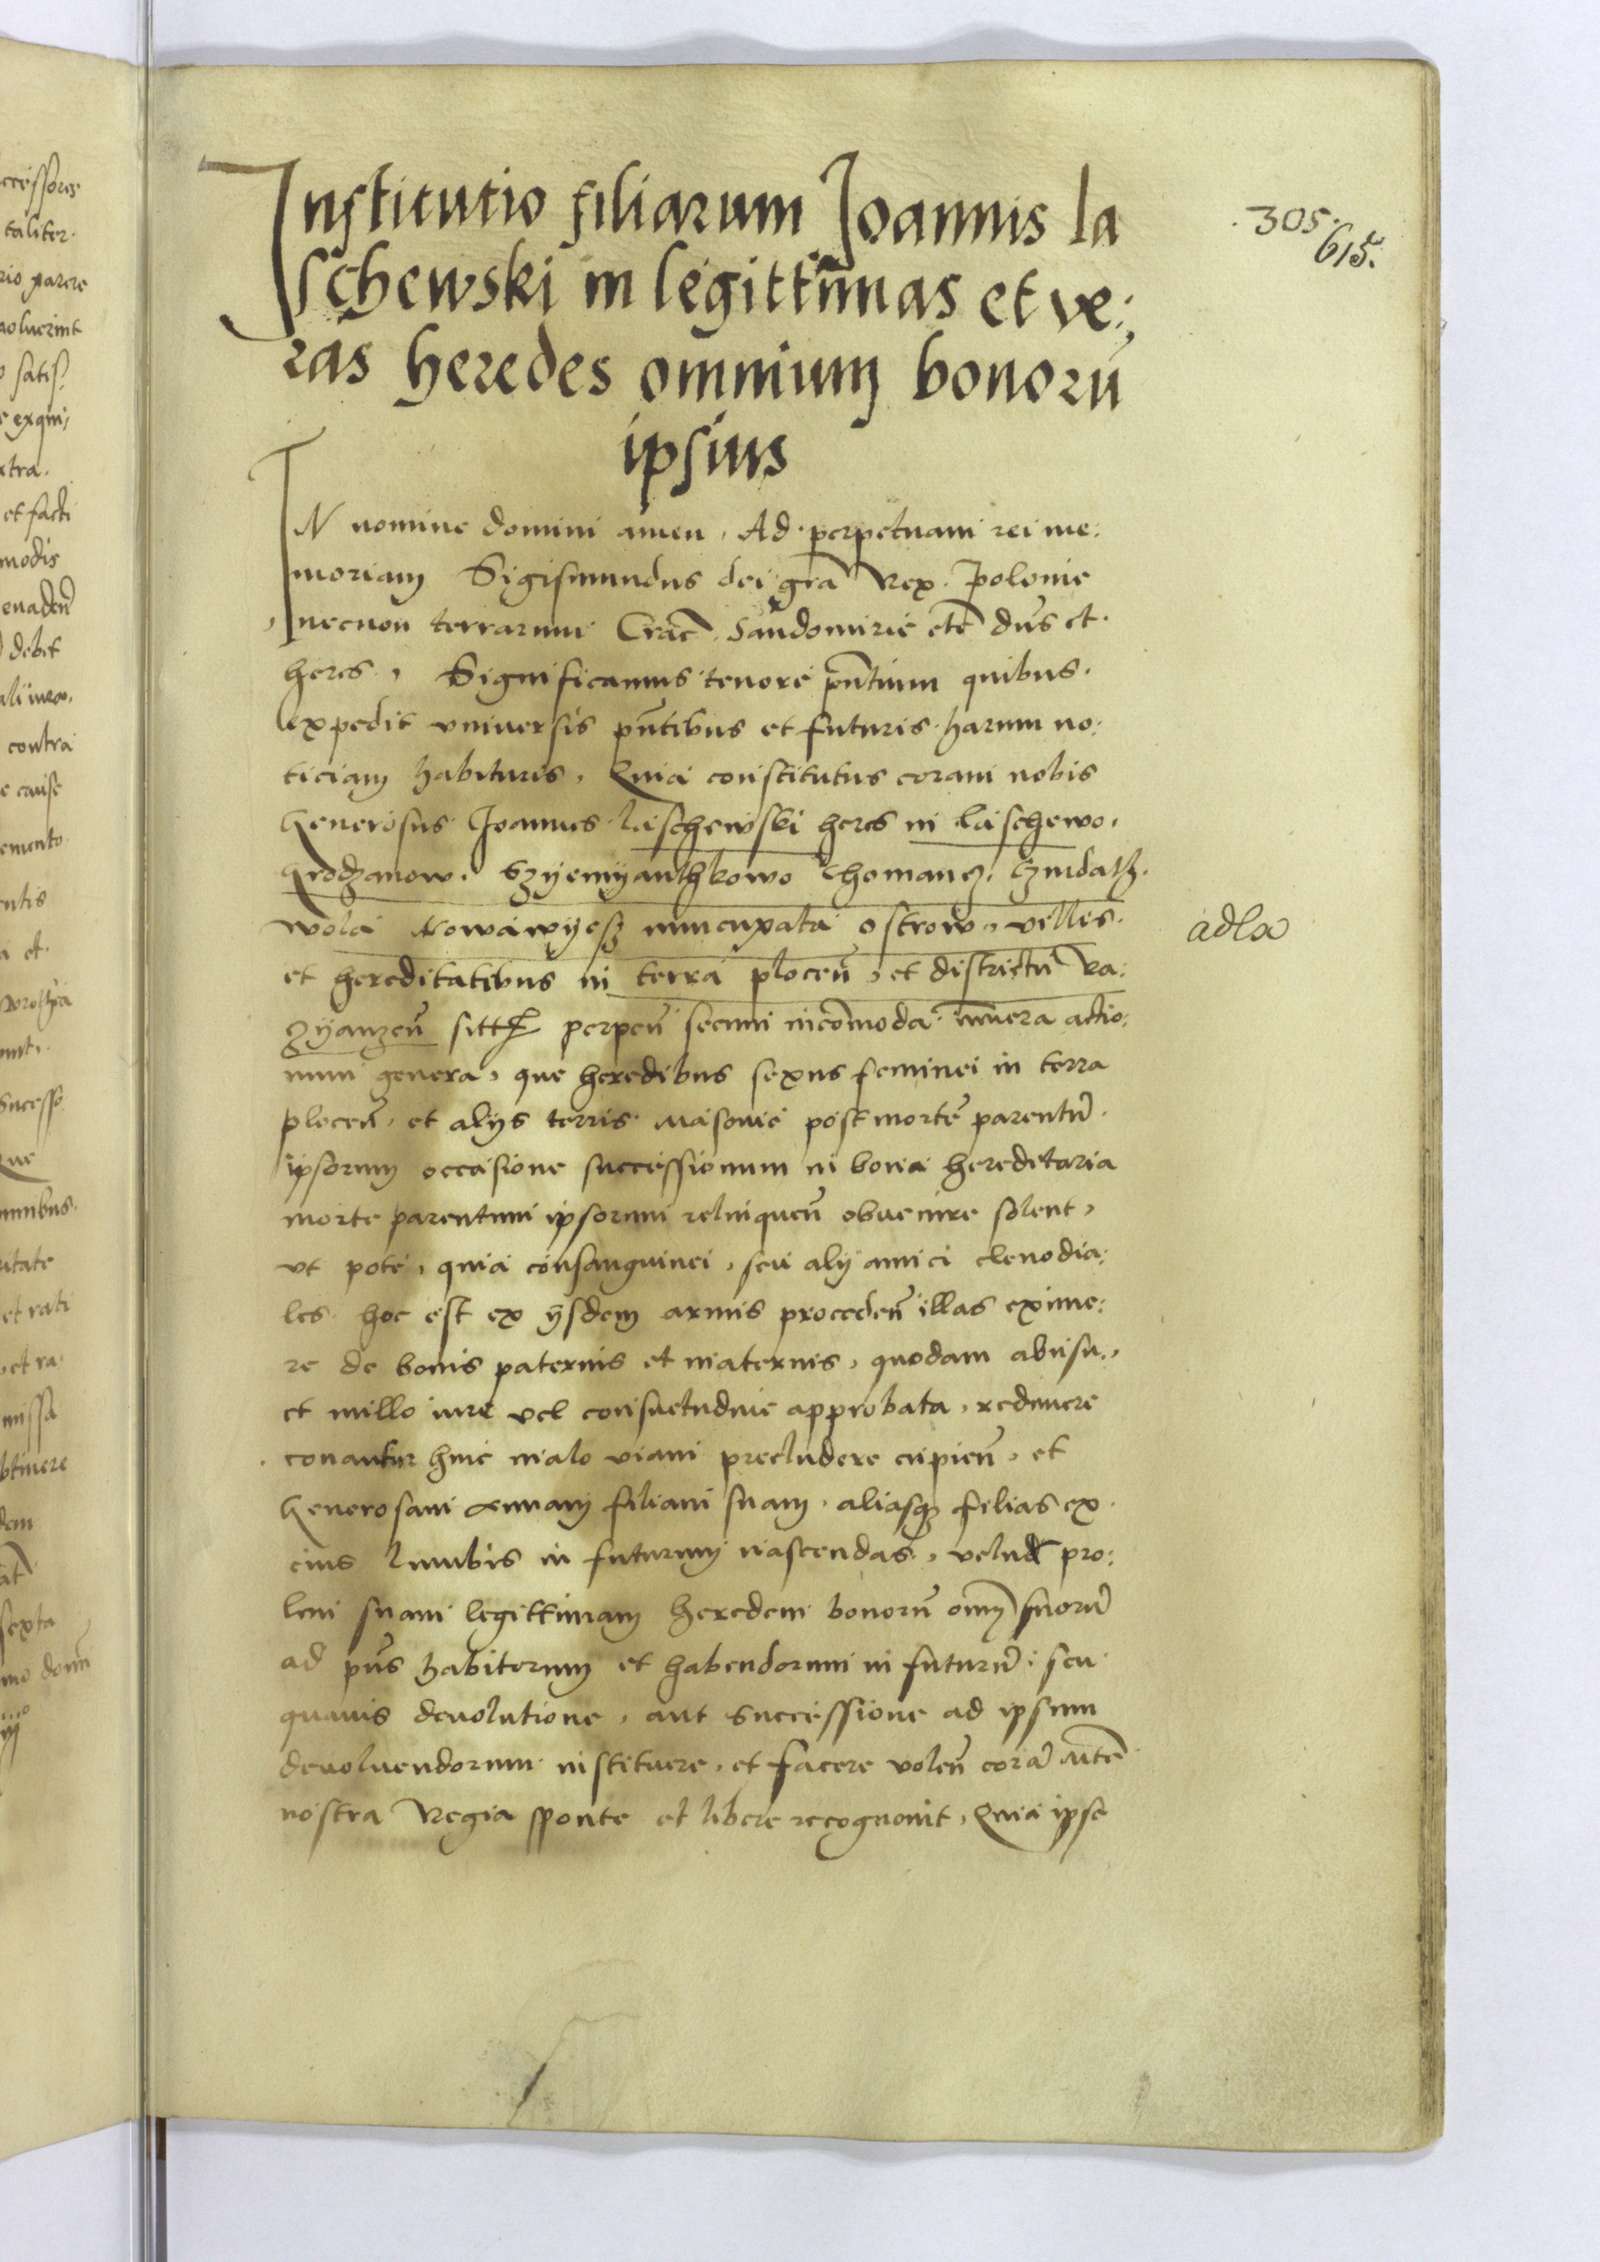 Institutio filiarum Joannis la
schewski in legittimas et ve:
ras heredes omnium bonorū
ipsius
305.
615.
IN nomine domini amen. Ad perpetuam rei me:
moriam Sigismundus dei grā Rex Polonie
necnon terrarum Crac̄. Sandomirie etc̄ dn̄s et
heres. Significamus tenore pn̄tium quibus
expedit vniuersis pn̄tibus et futuris harum no:
ticiam habituris. Quia constitutus coram nobis
Generosus Joannes Laschewski heres in Laschewo.
Grodzanow. Szyemyanthkowo Chomancz.
Wola Nowawyesz nuncupata Ostrow, villes
et hereditatibus in terra plocen̄, et districtu Ra:
zyanzen̄ perpen̄ secum incom̄oda actio:
num genera, que heredibus sexus feminei in terra
plocen̄. et alijs terris Masouie post mortē parentū
ipsorum occasione successionum in bona hereditaria
morte parentum ipsorum relinquen̄ obuenire solent,
vt pote, quia consanguinei, seu alij amici clenodia:
les hoc est ex ijsdem armis proceden̄ illas exime:
re de bonis paternis et maternis, quodam abusu,
et nullo iure vel consuetudine approbata, redimere
conantur huic malo viam precludere cupien̄, et
Generosam Annam filiam suam, aliasq̨ filias ex
eius lumbis in futurum nascendas, velud pro:
lem suam legittimam heredem bonorū om̄ suorū
ad pn̄s habitorum et habendorum in futurū: seu
quauis deuolutione, aut successione ad ipsum
deuoluendorum instituere, et facere volen̄ corā Mte
nostra Regia sponte et libere recognouit, Quia ipse